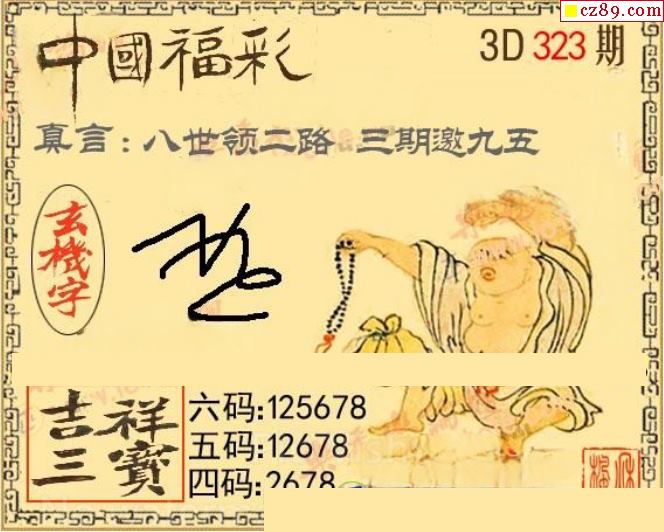 cz89.com
中國福彩
3D 323 期
真言:八世领二路 三期邀九五
玄機字
吉祥三寶
六码:125678
五码:12678
四码:2678